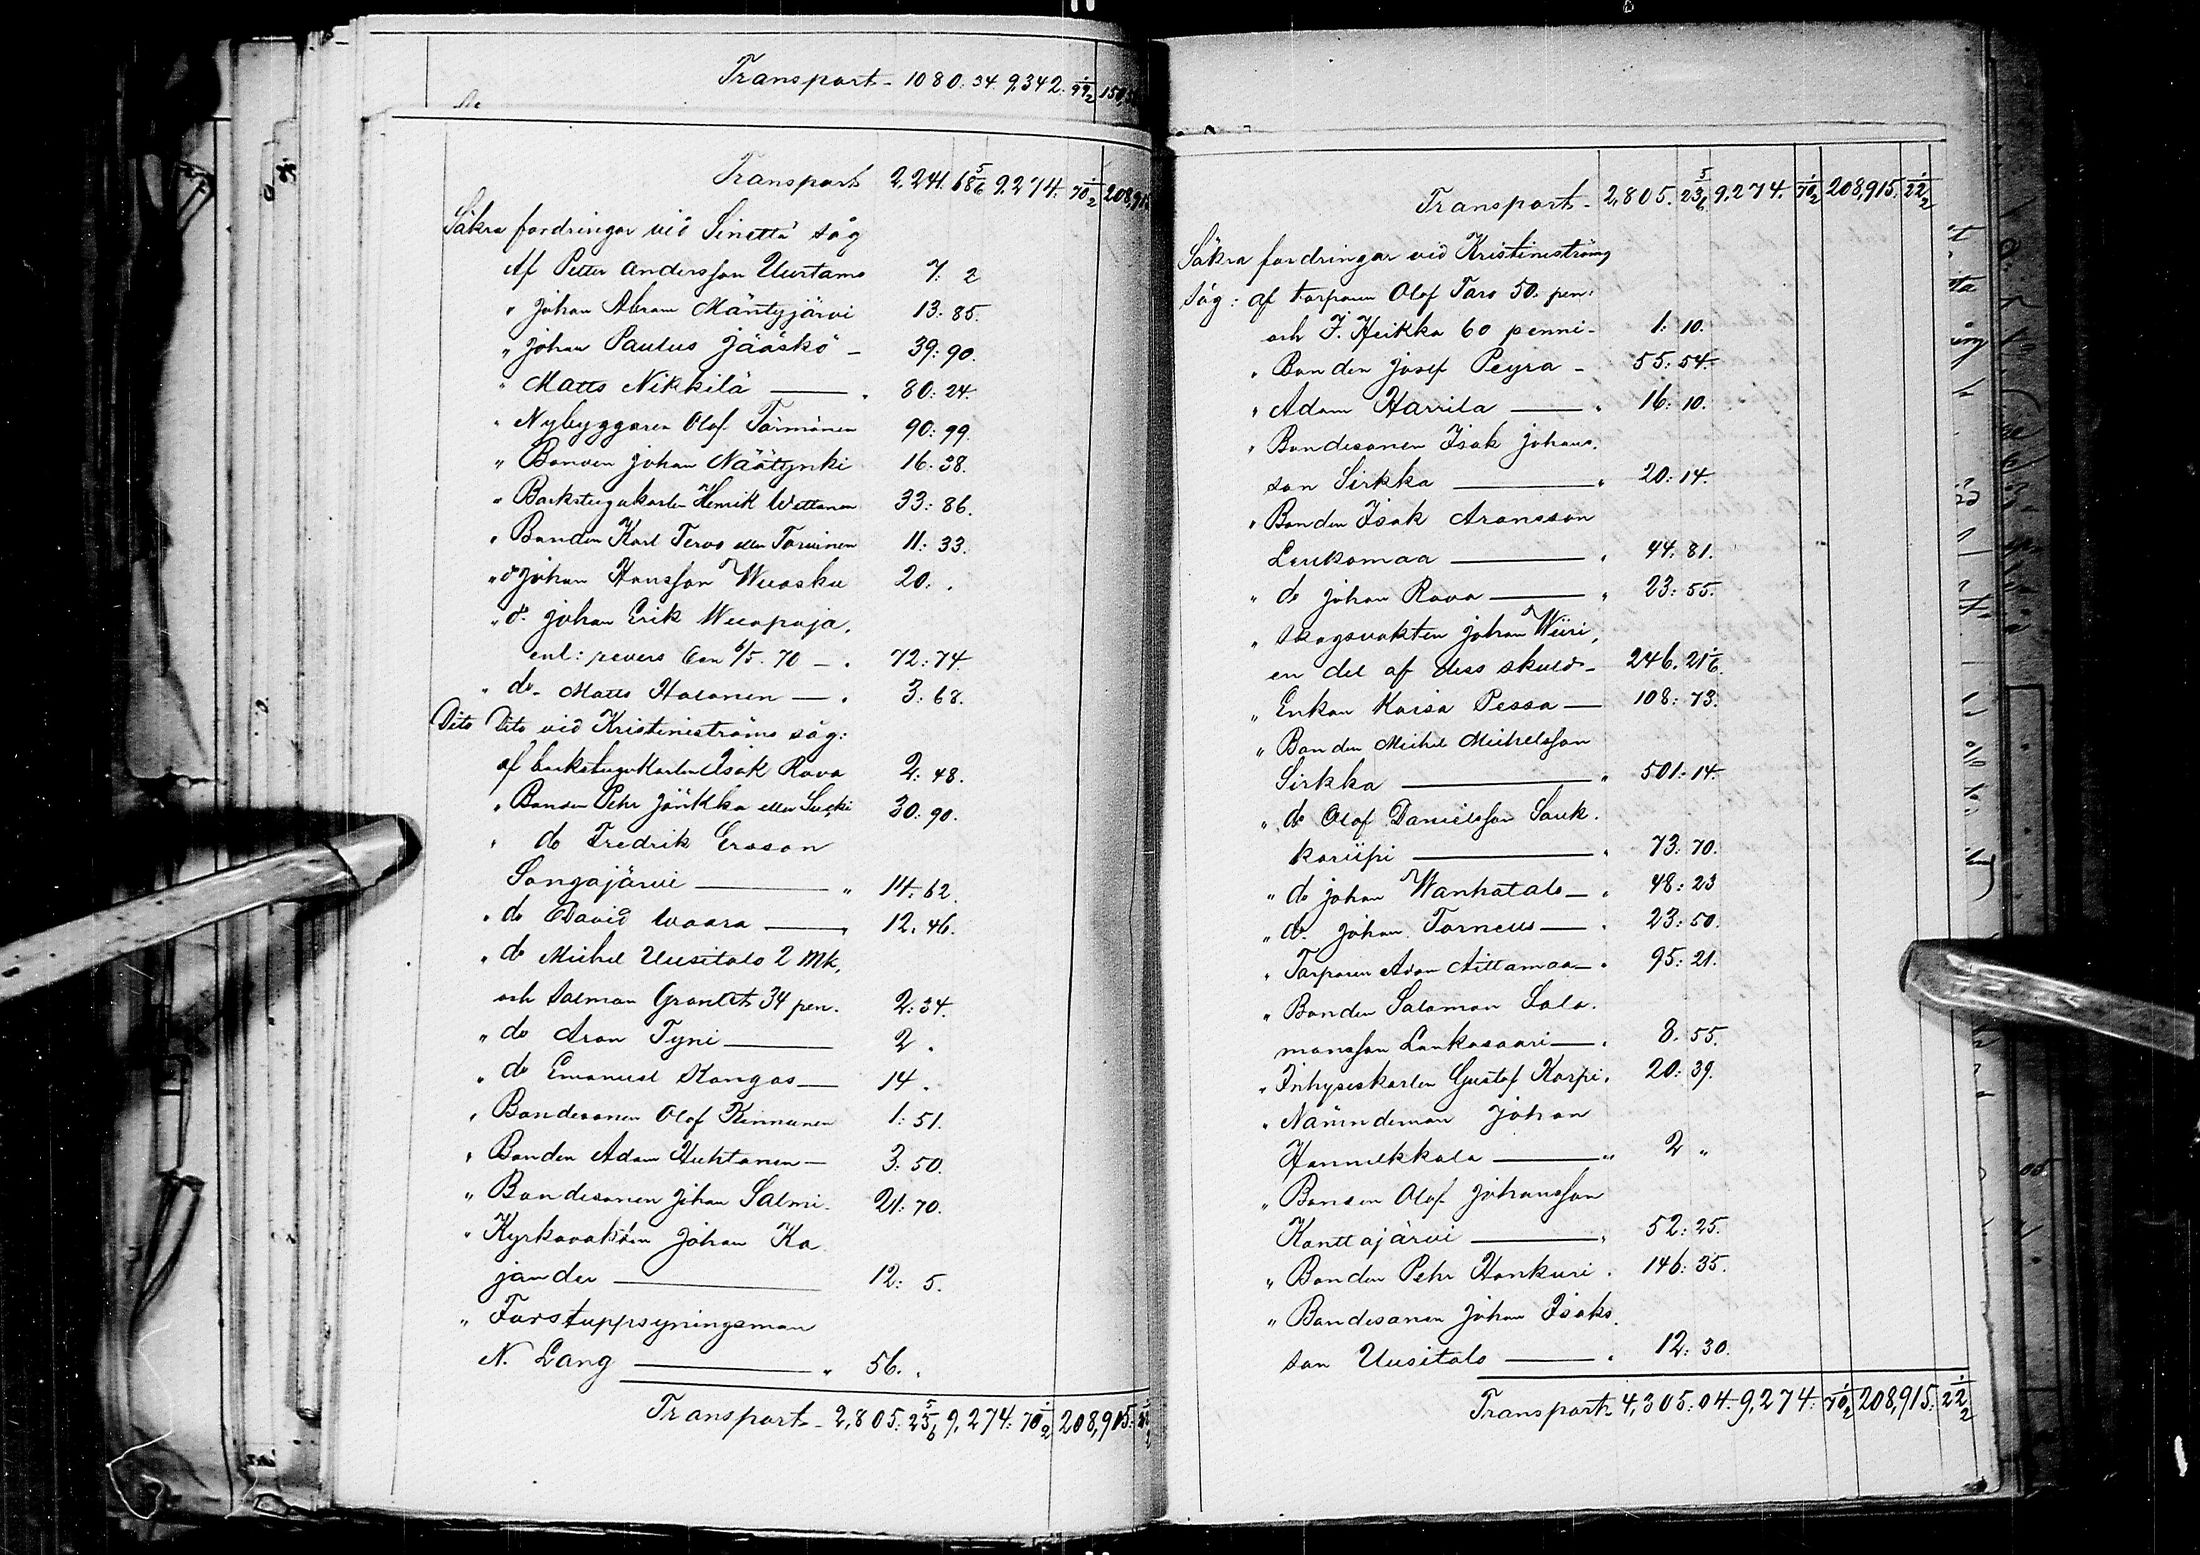 Transport 1080:34. 9,342. 99 1/2
Transport 2,241. 68 5/6 9,274. 70 1/2 208,915
Säkra fordringar vid Sinettä såg
Af Petter Andersson Uurtamo 7: 2
" Johan Abram Mäntyjärvi 13: 85.
" Johan Paulus Jääskö - 39: 90.
" Matts Nikkilä — 80: 24.
" Nybyggaren Olof Törmänen 90: 99.
" Bonden Johan Näätynki 16: 38.
" Backstugukarlen Henrik Wettanen 33: 86.
" Bonden Karl Tervo eller Torvinen 11: 33.
" do Johan Hansson Wuosku 20: .
" do Johan Erik Wuopaja,
enl: revers den 6/5. 70 - . 72: 74
" do Matts Halonen — . 3: 68.
Dito Dito vid Kristineströms såg:
af backstugukarlen Isak Rova 2: 48.
" Bonden Pehr Jänkka eller Sucki 30: 90.
" do Fredrik Ersson
Songajärvi — " 14: 62.
" do David Waara — 12. 46.
" do Michel Uusitalo 2 Mk,
och Salmon Granlet 34 pen. 2: 34.
" do Aron Tyni — 2 .
" do Emanuel Kangas — 14 .
" Bondesonen Olof Kinnunen 1: 51.
" Bonden Adam Huhtanen — 3: 50.
" Bondesonen Johan Salmi - 21: 70.
" Kyrkovakten Johan Ka
jander — 12: 5.
" Forstuppsyningsman
N. Lang — " 56. .
Transport - 2,805: 23 5/6 9,274: 70 1/2 208,915: 22 1/2
Transport - 2,805. 23 5/6 9,274. 70 1/2 208,915. 22 1/2
Säkra fordringar vid Kristineströms
såg: af torparen Olof Taro 50. pen:
och J. Heikka 60 penni - 1: 10.
" Bonden Josef Peyra - 55: 54.
" Adam Harrila — " 16: 10.
" Bondesonen Isak Johans.
son Sirkka — " 20: 14.
" Bonden Isak Aronsson
Leukomaa — " 44: 81.
" do Johan Rova — " 23: 55.
" Skogsvakten Johan Wiiri,
en del af dess skuld - 246. 21 1/6.
" Enkan Kaisa Pessa — 108: 73.
" Bonden Michel Michelsson
Sirkka — " 501: 14.
" do Olof Danielsson Sauk.
koriipi — " 73: 70.
" do Johan Wanhatalo — . 48: 23
" do. Johan Torneus — . 23: 50.
" Torparen Adam Aittamaa — . 95: 21.
" Bonden Salamon Salo.
monsson Lankasaari — . 8. 55.
" Inhyseskarlen Gustaf Korpi. 20: 39.
" Nämndeman Johan
Hannukkala — " 2 "
" Bonden Olof Johansson
Konttajärvi — " 52: 25.
" Bonden Pehr Honkuri . 146: 35.
" Bondesonen Johan Isaks.
son Uusitalo — . 12: 30.
Transport - 4,305: 04. 9,274. 70 1/2 208,915. 22 1/2